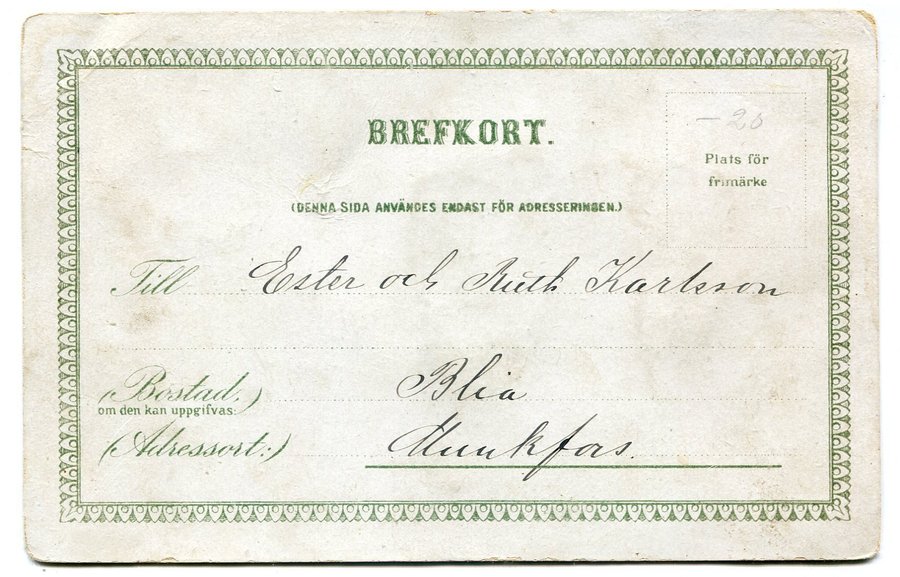 BREFKORT.
– 20
Plats för
frimärke
(DENNA SIDA ANVÄNDES ENDAST FÖR ADRESSERINGEN.)
Till Ester och Ruth Karlsson
(Bostad,) Blia
om den kan uppgifvas:
(Adressort:) Munkfors.